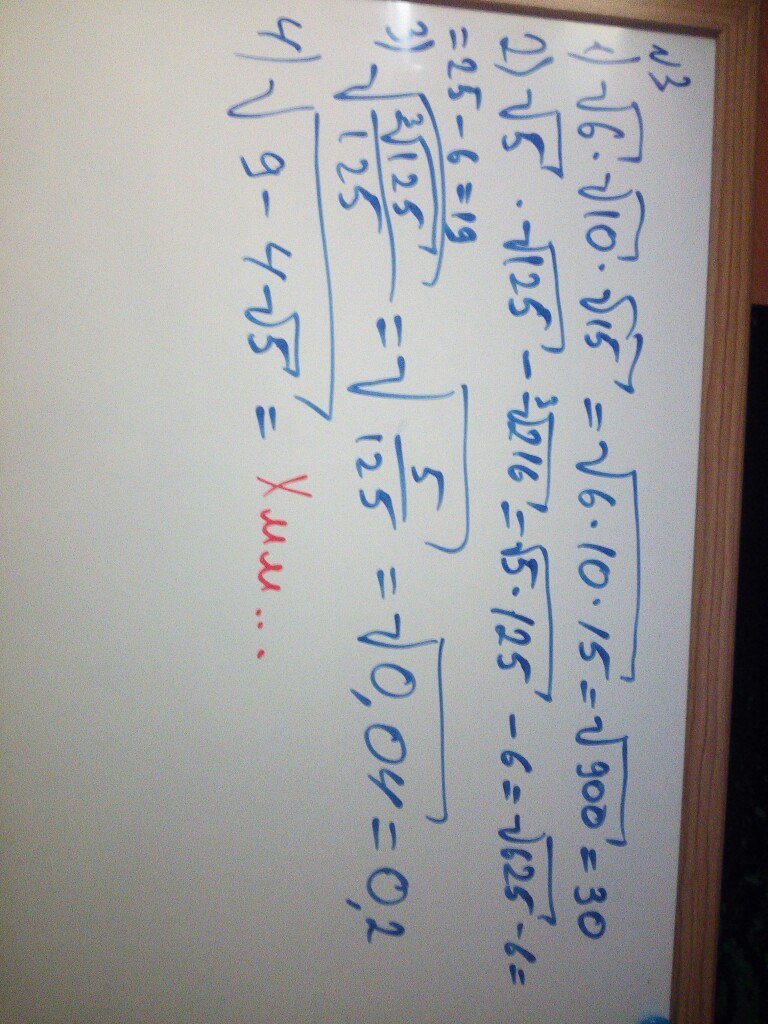 №3
1) √6 · √10 · √15 = √6·10·15 = √900 = 30
2) √5 · √125 - ³√216 = √5·125 - 6 = √625 - 6 =
= 25 - 6 = 19
3) √(³√125/125) = √(5/125) = √0,04 = 0,2
4) √(9 - 4√5) = Хмм...